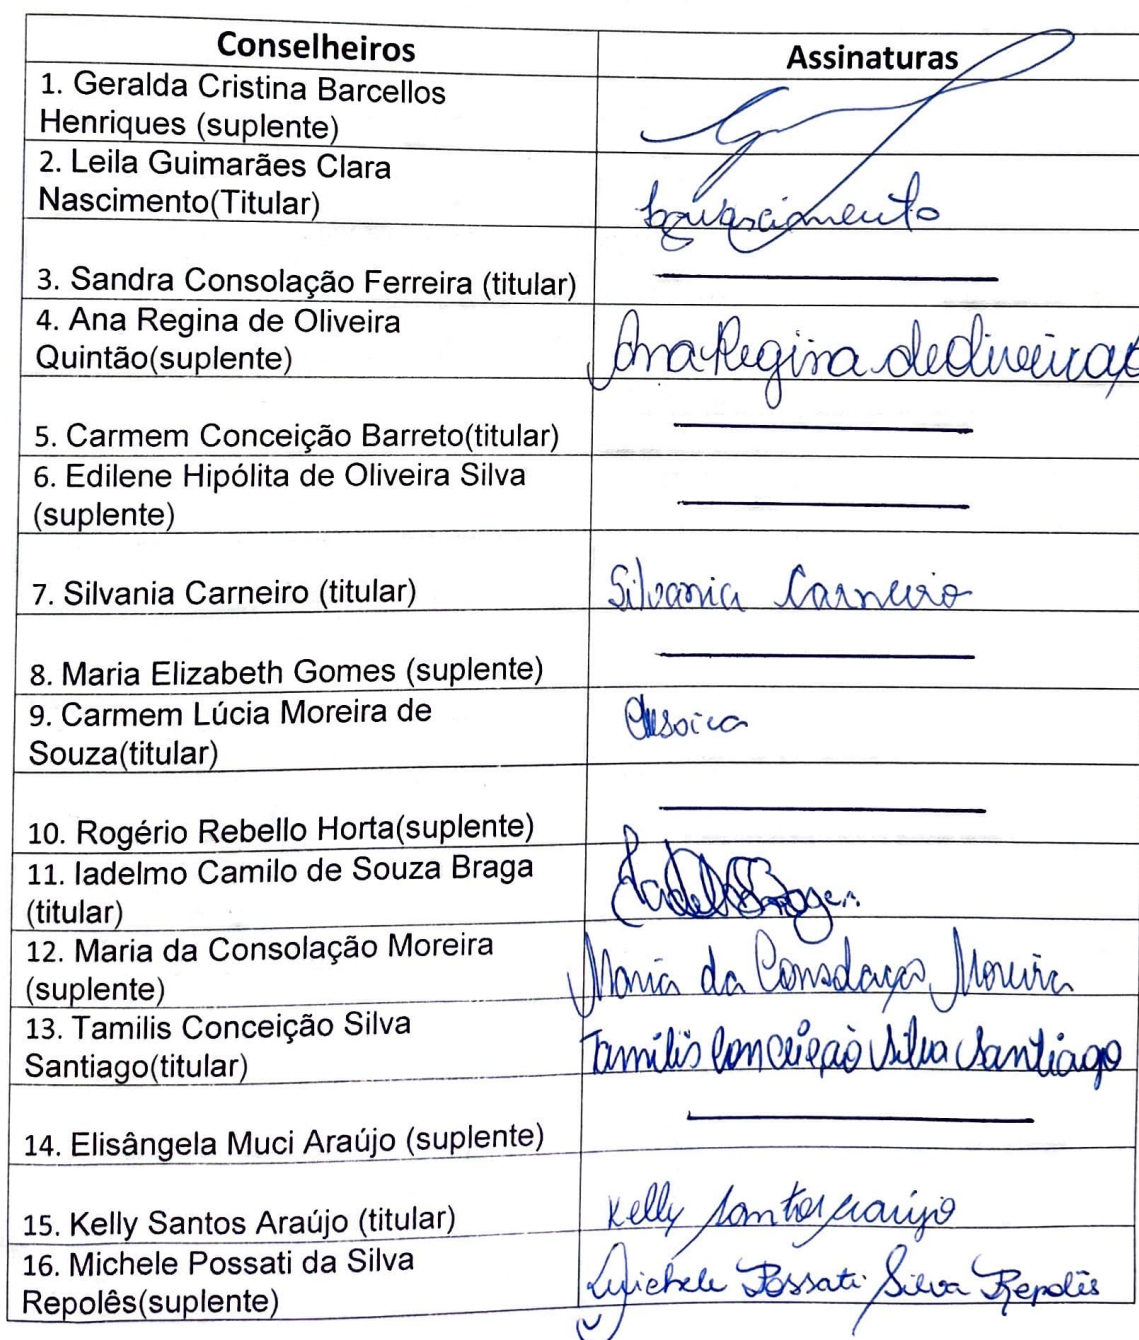 Conselheiros Assinaturas
1. Geralda Cristina Barcellos
Henriques (suplente)
2. Leila Guimarães Clara
Nascimento(Titular)
3. Sandra Consolação Ferreira (titular)
4. Ana Regina de Oliveira
Quintão(suplente) Ana Regina de Oliveira
5. Carmem Conceição Barreto(titular)
6. Edilene Hipólita de Oliveira Silva
(suplente)
7. Silvania Carneiro (titular) Silvania Carneiro
8. Maria Elizabeth Gomes (suplente)
9. Carmem Lúcia Moreira de
Souza(titular)
10. Rogério Rebello Horta(suplente)
11. Iadelmo Camilo de Souza Braga
(titular)
12. Maria da Consolação Moreira
(suplente) Maria da Consolação Moreira
13. Tamilis Conceição Silva
Santiago(titular) Tamilis Conceição Silva Santiago
14. Elisângela Muci Araújo (suplente)
15. Kelly Santos Araújo (titular) Kelly Santos Araújo
16. Michele Possati da Silva
Repolês(suplente) Michele Possati Silva Repolês